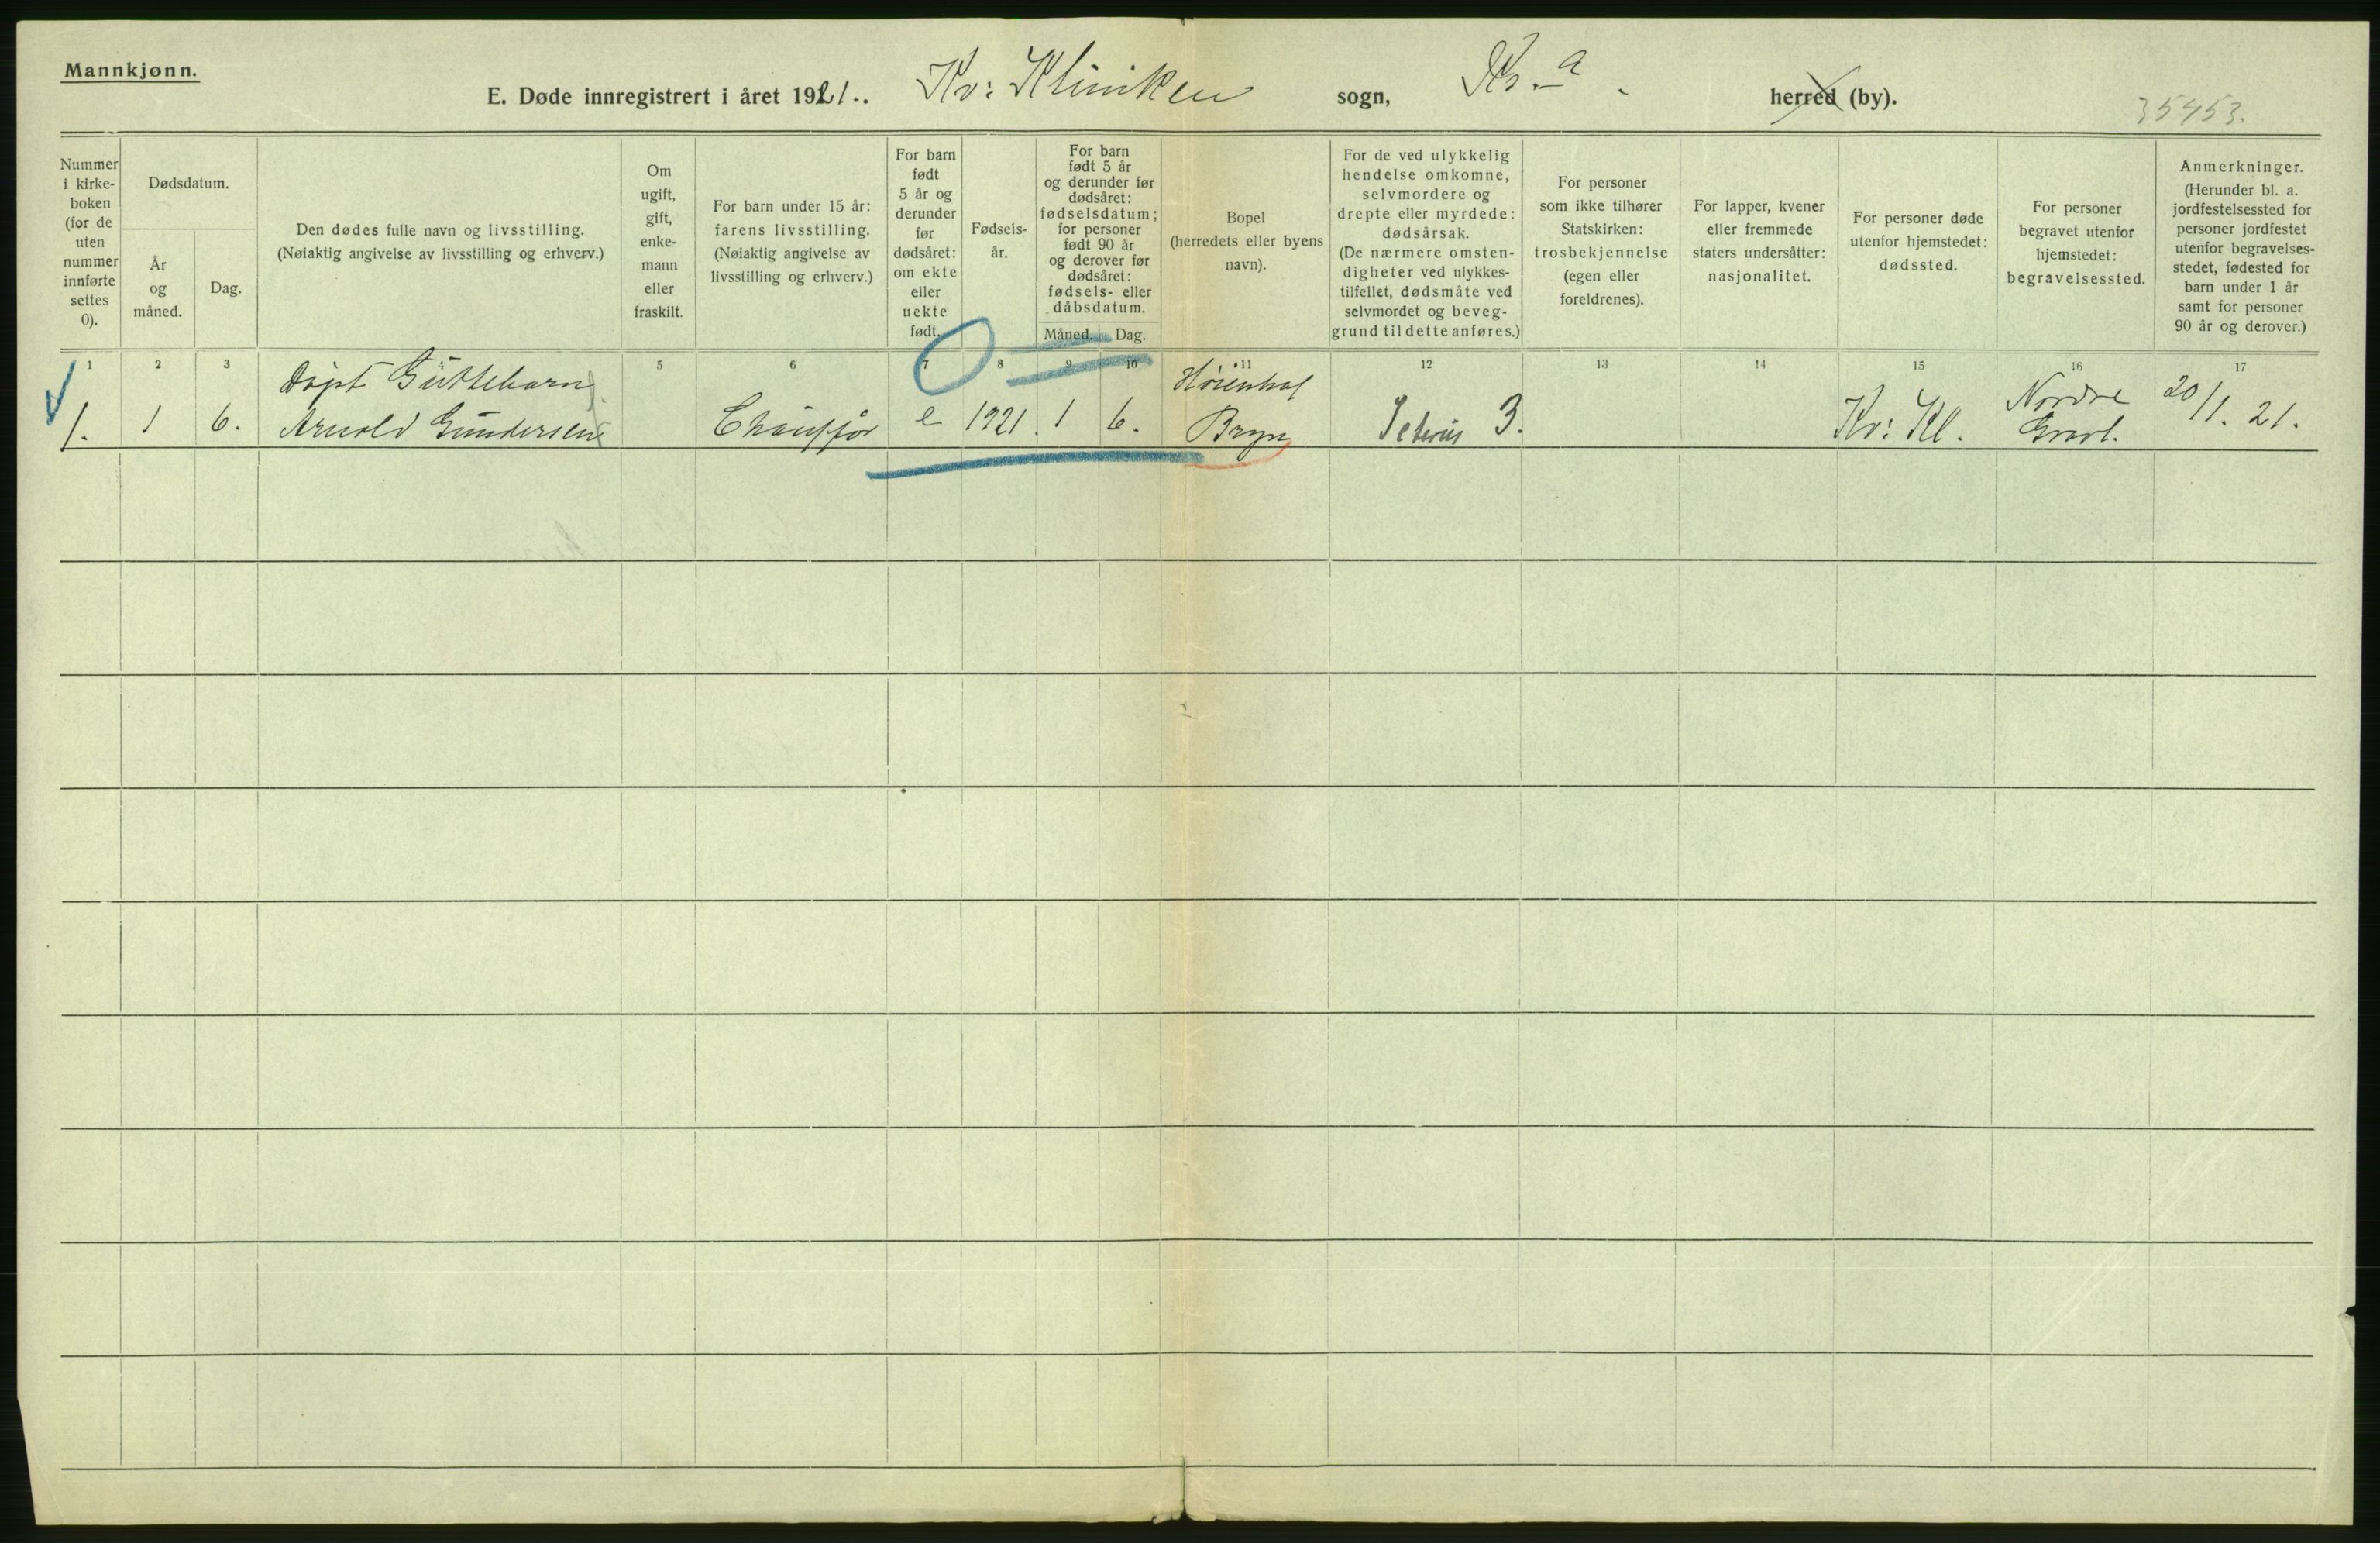 Mannkjønn.
E. Døde innregistrert i året 1921.. Kv: Kliniken sogn, Kr.a. herred (by).
35453.
Nummer i kirke- boken (for de uten nummer innførte settes 0).
Dødsdatum.
År og måned.
Dag.
Den dødes fulle navn og livsstilling.
(Nøiaktig angivelse av livsstilling og erhverv.)
Om ugift, gift, enke- mann eller fraskilt.
For barn under 15 år:
farens livsstilling.
(Nøiaktig angivelse av
livsstilling og erhverv.)
For barn født 5 år og derunder før dødsåret: om ekte eller uekte født.
Fødsels- år.
For barn født 5 år og derunder før dødsåret: fødselsdatum; for personer født 90 år og derover før dødsåret: fødsels- eller dåbsdatum.
Måned. Dag.
Bopel
(herredets eller byens
navn).
For de ved ulykkelig
hendelse omkomne,
selvmordere og
drepte eller myrdede:
dødsårsak.
(De nærmere omsten-
digheter ved ulykkes-
tilfellet, dødsmåte ved
selvmordet og beveg-
grund til dette anføres.)
For personer
som ikke tilhører
Statskirken:
trosbekjennelse
(egen eller
foreldrenes).
For lapper, kvener
eller fremmede
staters undersåtter:
nasjonalitet.
For personer døde
utenfor hjemstedet:
dødssted.
For personer
begravet utenfor
hjemstedet:
begravelsessted.
Anmerkninger.
(Herunder bl. a.
jordfestelsessted for
personer jordfestet
utenfor begravelses-
stedet, fødested for
barn under 1 år
samt for personer
90 år og derover.)
1 2 3 5 6 7 8 9 10 11 12 13 14 15 16 17
Døpt Guttebarn
1. 1 6. Arnold Gundersen Chauffør e 1921. 1 6. Bryn 3. Kv: Kl. Nordre Gravl. 20/1. 21.